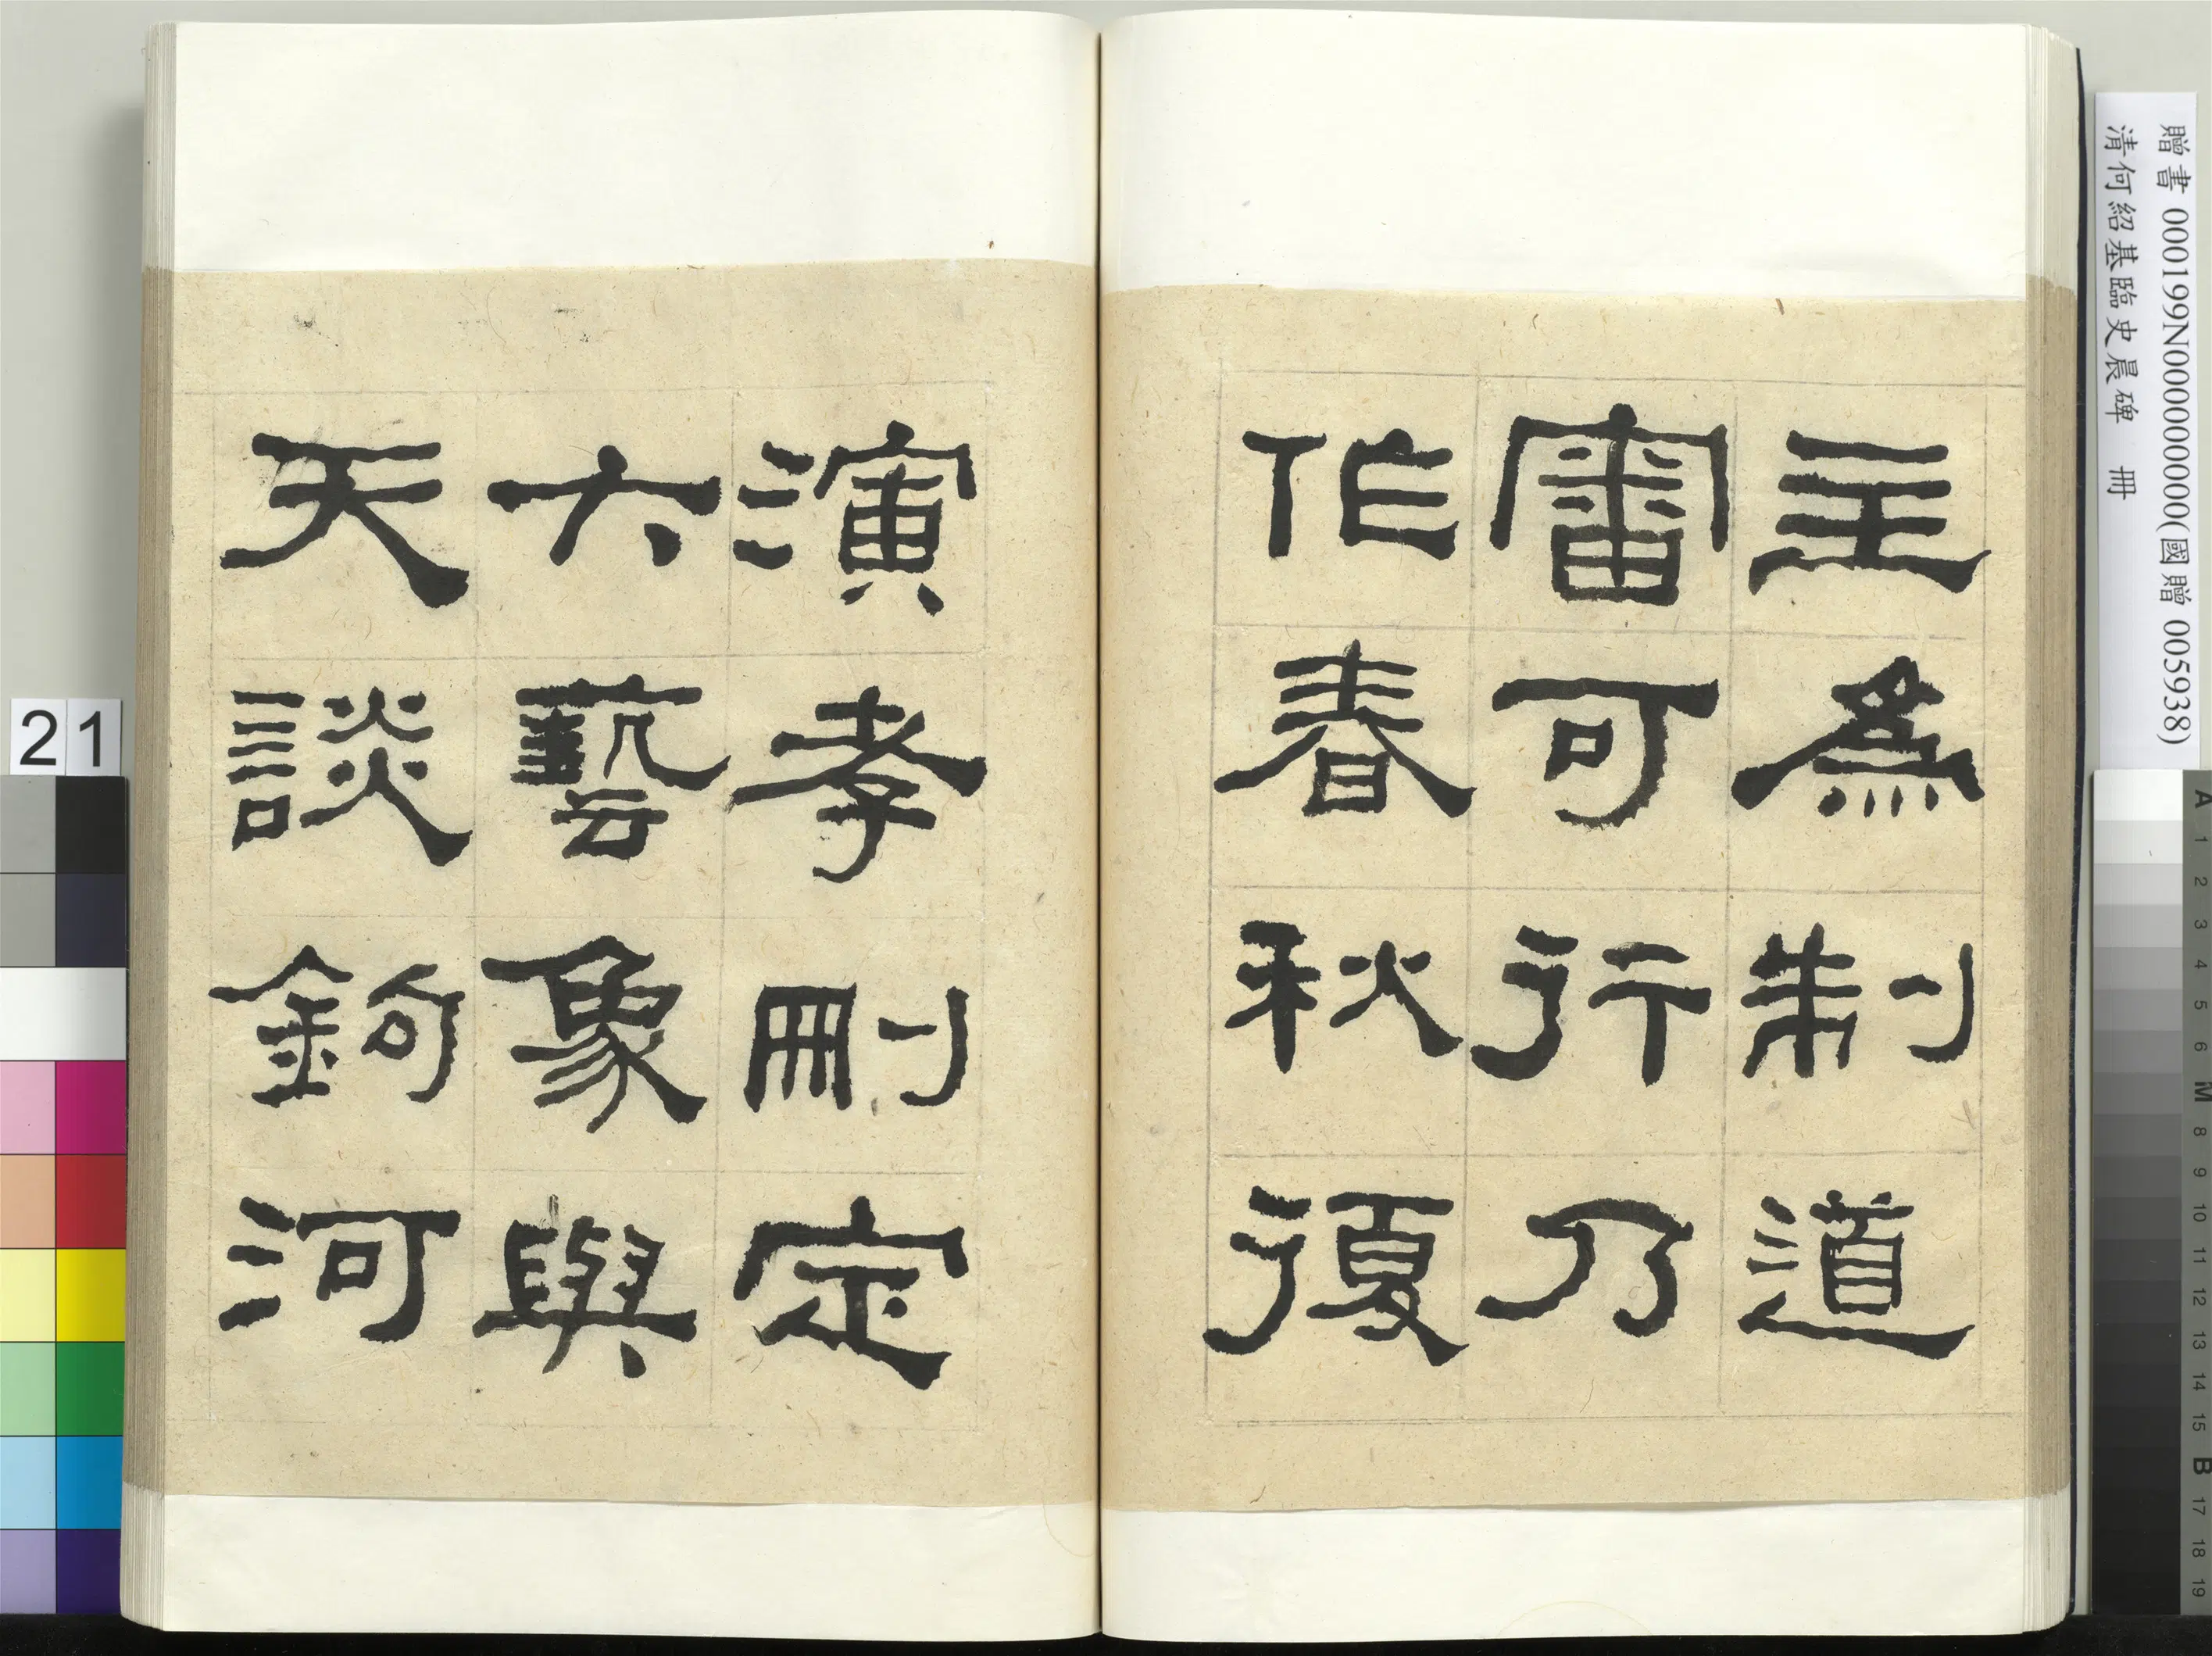 主為制道
審可行乃
作春秋復
演孝刪定
六藝象與
天談鉤河
贈書 000199N000000000(國贈 005938)
清何紹基臨史晨碑 冊
21
A 1 2 3 4 5 6 M 8 9 10 11 12 13 14 15 B 17 18 19